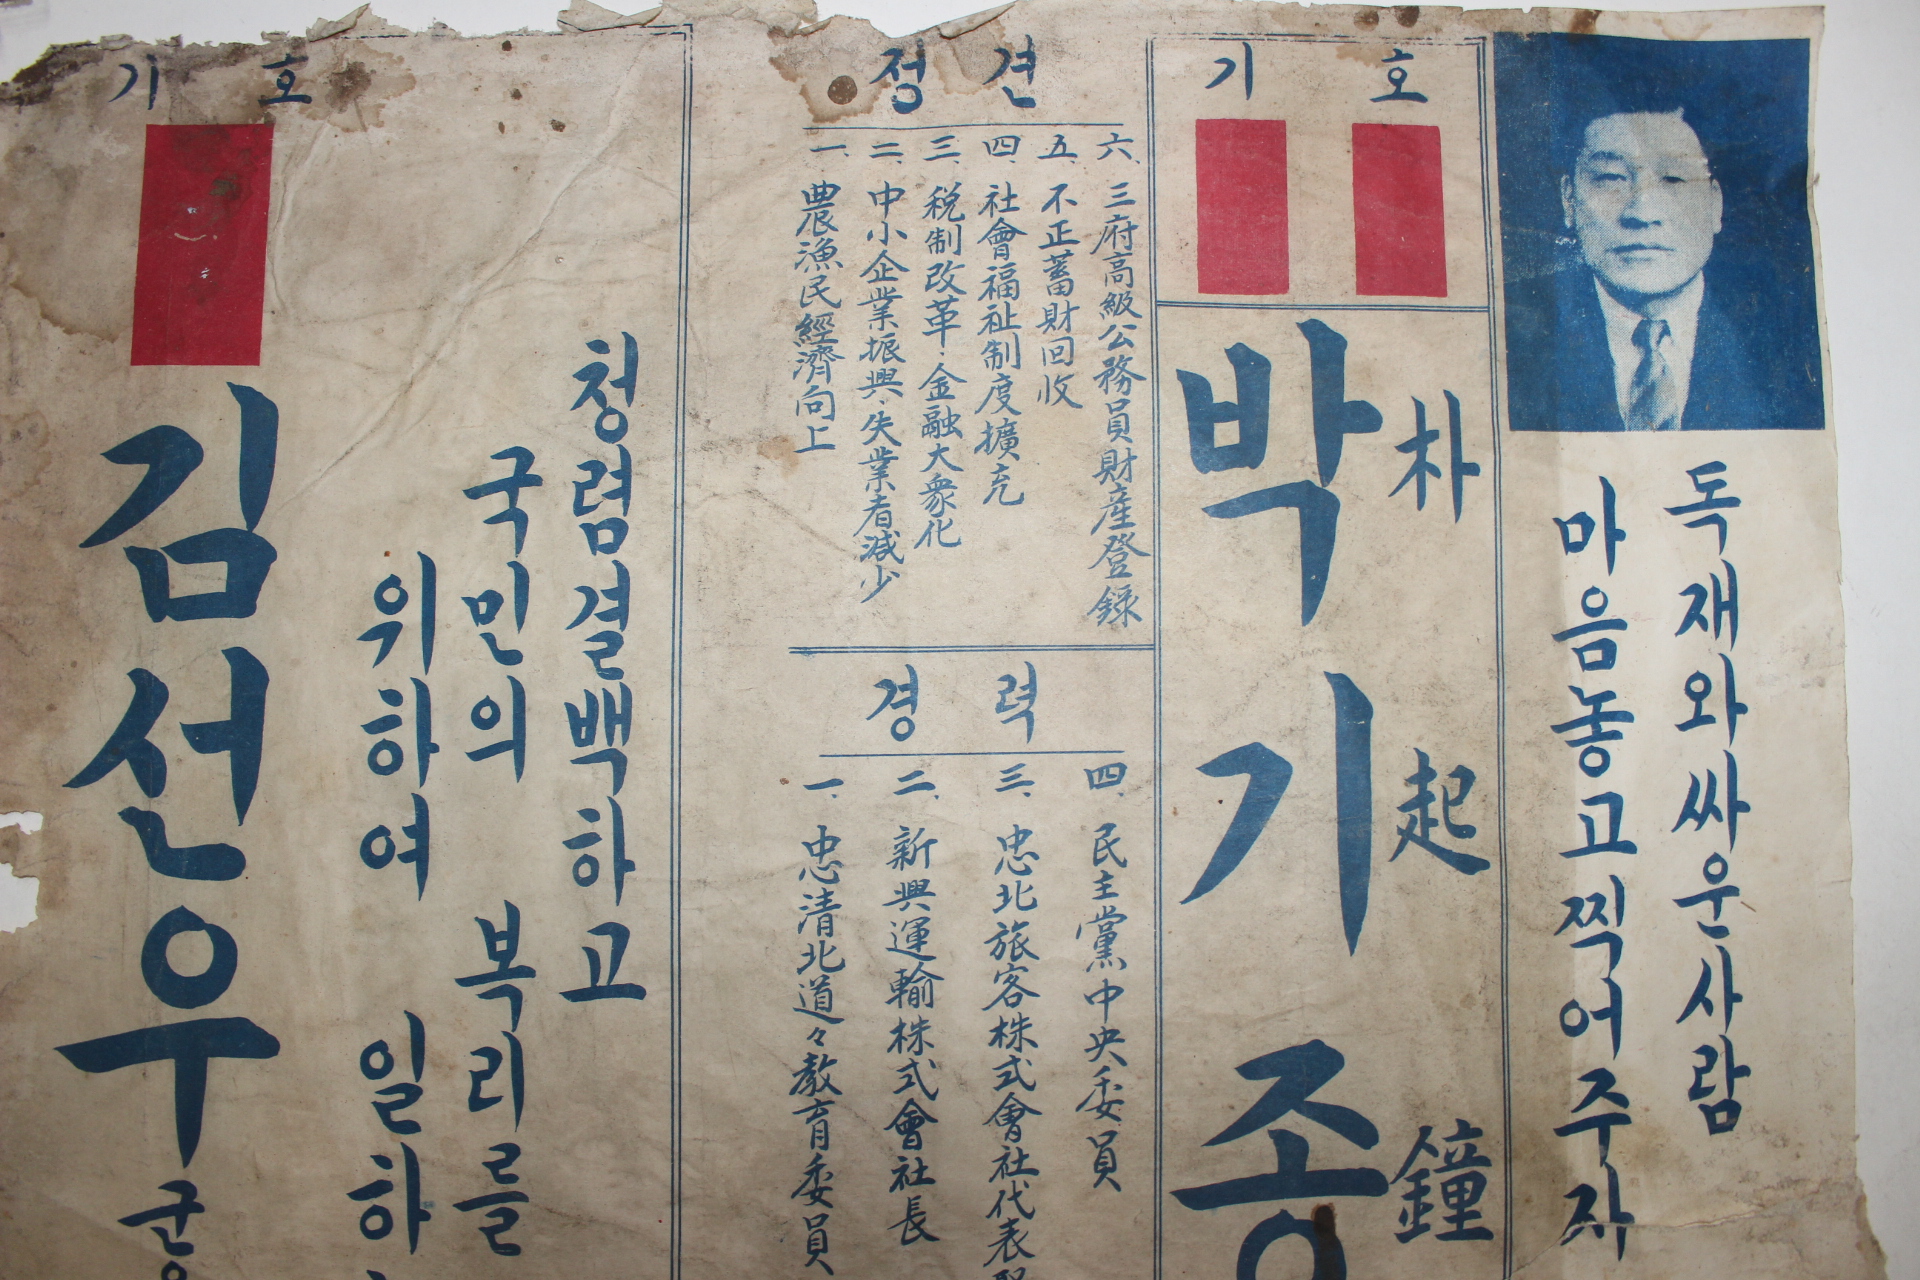 독재와싸운사람
마음놓고찍어주자
기 호
朴起鐘
박기종
정견
一、農漁民經濟向上
二、中小企業振興、失業者減少
三、税制改革、金融大衆化
四、社會福祉制度擴充
五、不正蓄財回收
六、三府高級公務員財産登錄
경력
一、忠淸北道々敎育委員
二、新興運輸株式會社長
三、忠北旅客株式會社代表
四、民主黨中央委員
청렴결백하고
국민의 복리를
위하여 일하
기 호
김선우 군